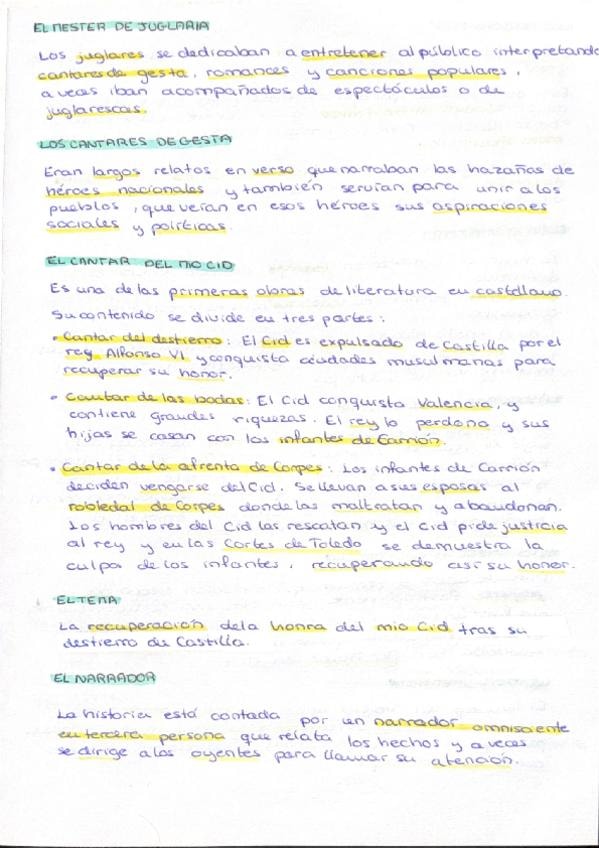 EL MESTER DE JUGLARIA
Los juglares se dedicaban a entretener al público interpretando
cantares de gesta, romances y canciones populares,
a veces iban acompañados de espectáculos o de
juglarescas.
LOS CANTARES DE GESTA
Eran largos relatos en verso que narraban las hazañas de
héroes nacionales y también servían para unir a los
pueblos, que veían en esos héroes sus aspiraciones
sociales y políticas.
EL CANTAR DEL MIO CID
Es una de las primeras obras de literatura en castellano.
Su contenido se divide en tres partes:
• Cantar del destierro: El Cid es expulsado de Castilla por el
rey Alfonso VI y conquista ciudades musulmanas para
recuperar su honor.
• Cantar de las bodas: El Cid conquista Valencia, y
contiene grandes riquezas. El rey lo perdona y sus
hijas se casan con los infantes de Carrión.
• Cantar de la afrenta de Corpes: Los infantes de Carrión
deciden vengarse del Cid. Se llevan a sus esposas al
robledal de Corpes donde las maltratan y abandonan.
Los hombres del Cid las rescatan y el Cid pide justicia
al rey y en las Cortes de Toledo se demuestra la
culpa de los infantes, recuperando así su honor.
EL TEMA
La recuperación de la honra del mio Cid tras su
destierro de Castilla.
EL NARRADOR
La historia está contada por un narrador omnisciente
en tercera persona que relata los hechos y a veces
se dirige a los oyentes para llamar su atención.